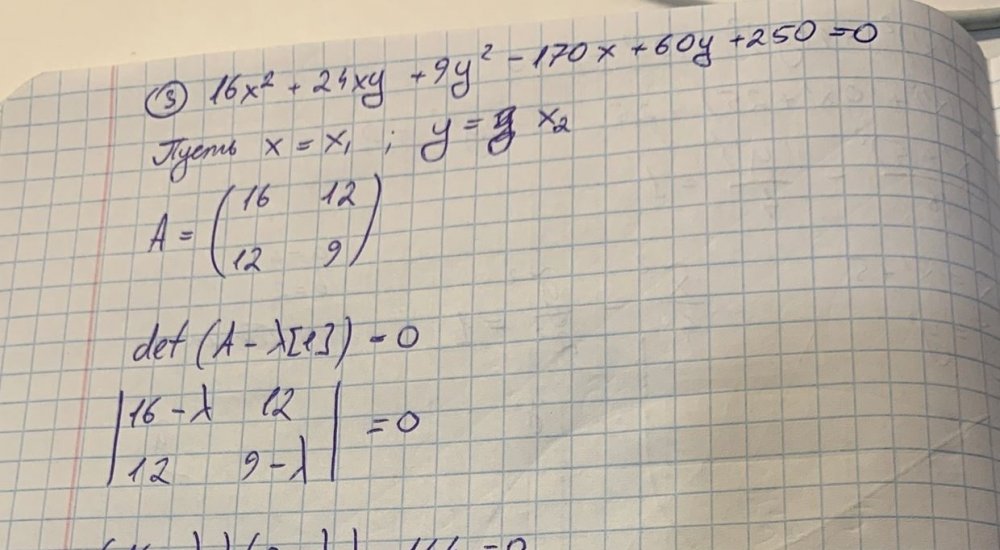 ③ 16x² + 24xy + 9y² - 170x + 60y + 250 = 0
Пусть x = x₁ ; y = x₂
A = (16 12
12 9)
det (A - λ[1]) = 0
|16 - λ 12
12 9 - λ| = 0